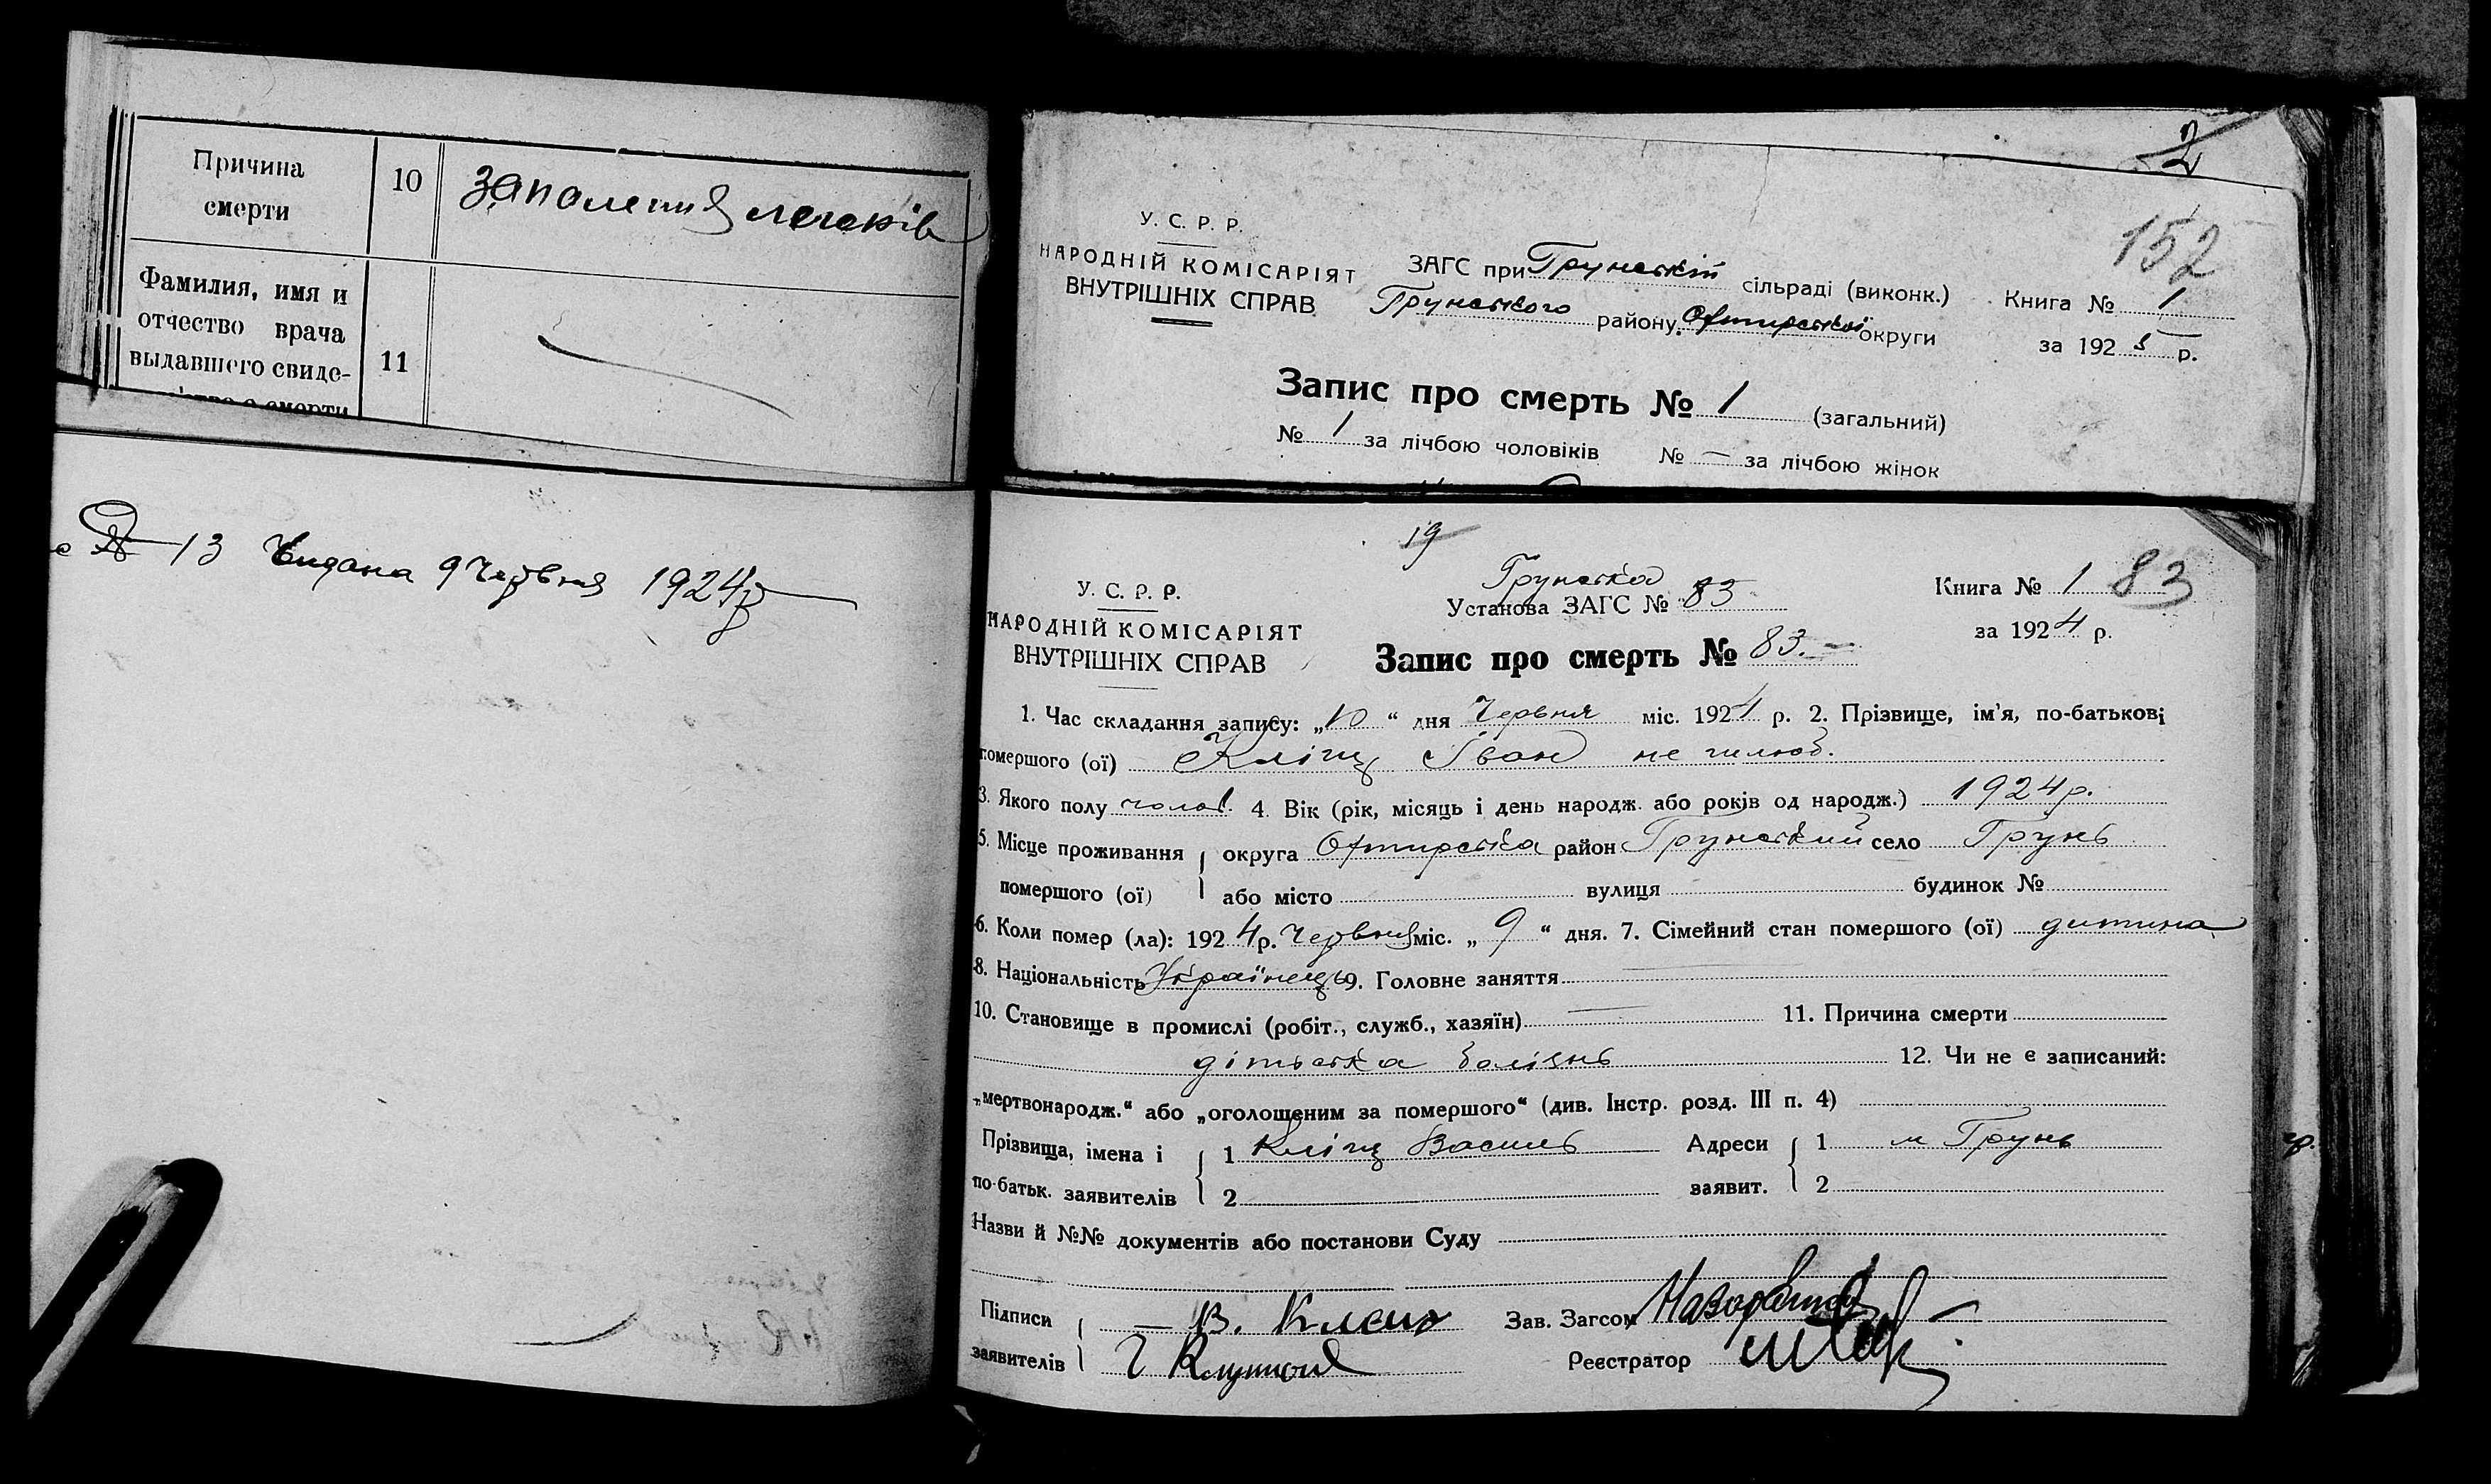 Причина
смерти
10
запаления легенів
Фамилия, имя и
отчество врача
выдавшего свиде-
11
13 Видана 9 Червня 1924 р
2
152
У. С. Р. Р.
НАРОДНІЙ КОМІСАРІЯТ
ВНУТРІШНІХ СПРАВ
ЗАГС при Грунській сільраді (виконк.)
Грунського району Охтирської округи
Книга № 1
за 1925 р.
Запис про смерть № 1 (загальний)
№ 1 за лічбою чоловіків № — за лічбою жінок
19
У. С. Р. Р.
НАРОДНІЙ КОМІСАРІЯТ
ВНУТРІШНІХ СПРАВ
Грунська
Установа ЗАГС № 83
Книга № 1 83
за 1924 р.
Запис про смерть № 83.—
1. Час складання запису: „10“ дня Червня міс. 1924 р. 2. Прізвище, ім'я, по-батькові
помершого (ої) Кліщ Іван
3. Якого полу чолов. 4. Вік (рік, місяць і день народж. або років од народж.) 1924 р.
5. Місце проживання округа Охтирська район Грунський село Грунь
помершого (ої) або місто вулиця будинок №
6. Коли помер (ла): 1924 р. Червня міс. „9“ дня. 7. Сімейний стан помершого (ої) дитина
8. Національність Українець 9. Головне заняття —
10. Становище в промислі (робіт., служб., хазяїн) — 11. Причина смерти
дітська болізнь 12. Чи не є записаний:
„мертвонародж.“ або „оголощеним за помершого“ (див. Інстр. розд. III п. 4)
Прізвища, імена і 1 Кліщ Василь Адреси 1 м Грунь
по-батьк. заявителів 2 заявит. 2
Назви й №№ документів або постанови Суду
Підписи — В. Клещ Зав. Загсом
заявителів Реєстратор